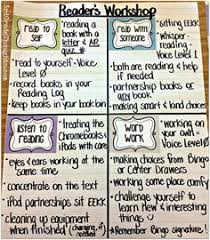 Reader's Workshop
read to self
• reading a book with a letter & AR quiz #
• read to yourself - Voice Level 0
• record books in your Reading Log
• Keep books in your book bin
read with someone
• sitting EEKK
• whisper-reading - Voice Level 1
• both are reading & help if needed
• partnership books or any book
• making smart & kind choices
listen to reading
• treating the Chromebooks & iPods with care
• eyes & ears working at the same time
• concentrate on the text
• iPod partnerships sit EEKK
• cleaning up equipment when finished
word work
• working on your own - Voice Level 0
• making choices from Bingo or Center Drawers
• working some place comfy
• challenge yourself to learn new & interesting things
• Remember Bingo signature!